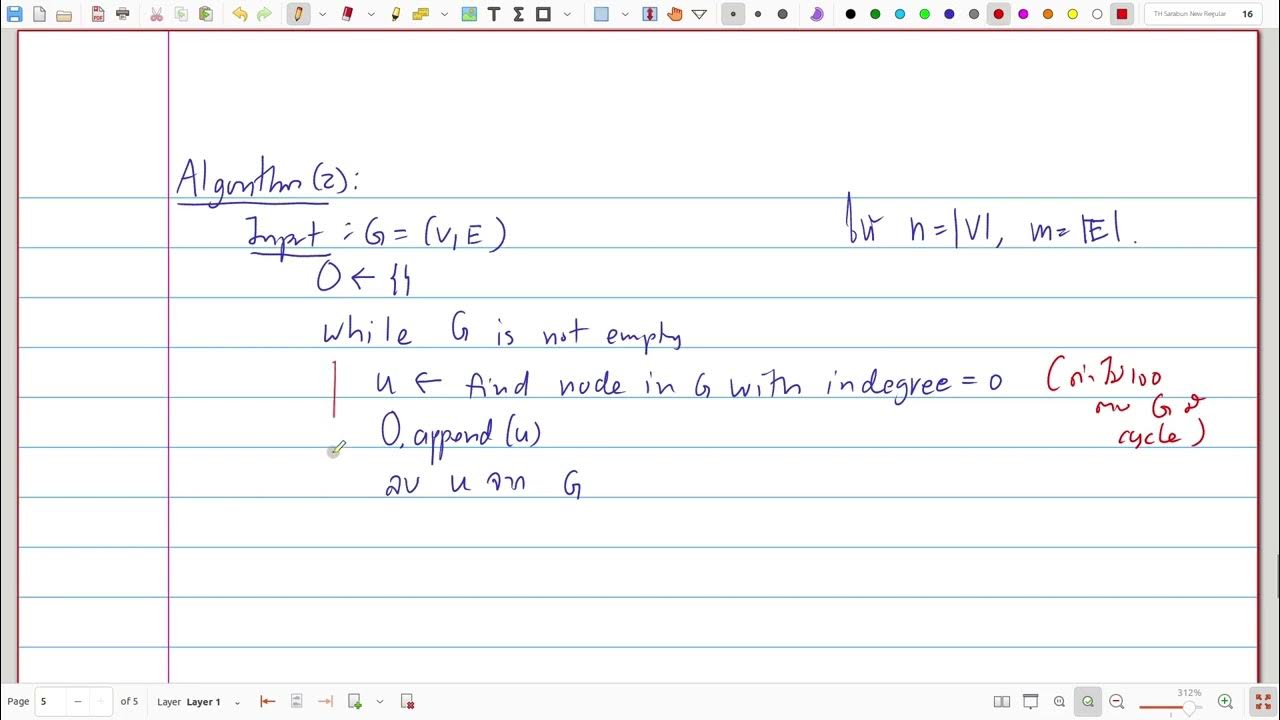 TH Sarabun New Regular 16
Algorithm (2):
Input : G = (V, E)
ให้ n = |V|, m = |E|.
O ← {}
while G is not empty
u ← find node in G with indegree = 0
(ถ้าไม่เจอ
G มี
cycle)
O.append(u)
ลบ u จาก G
Page 5 of 5 Layer Layer 1
312%